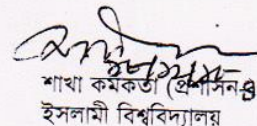 শাখা কর্মকর্তা (প্রশাসন-৪
ইসলামী বিশ্ববিদ্যালয়